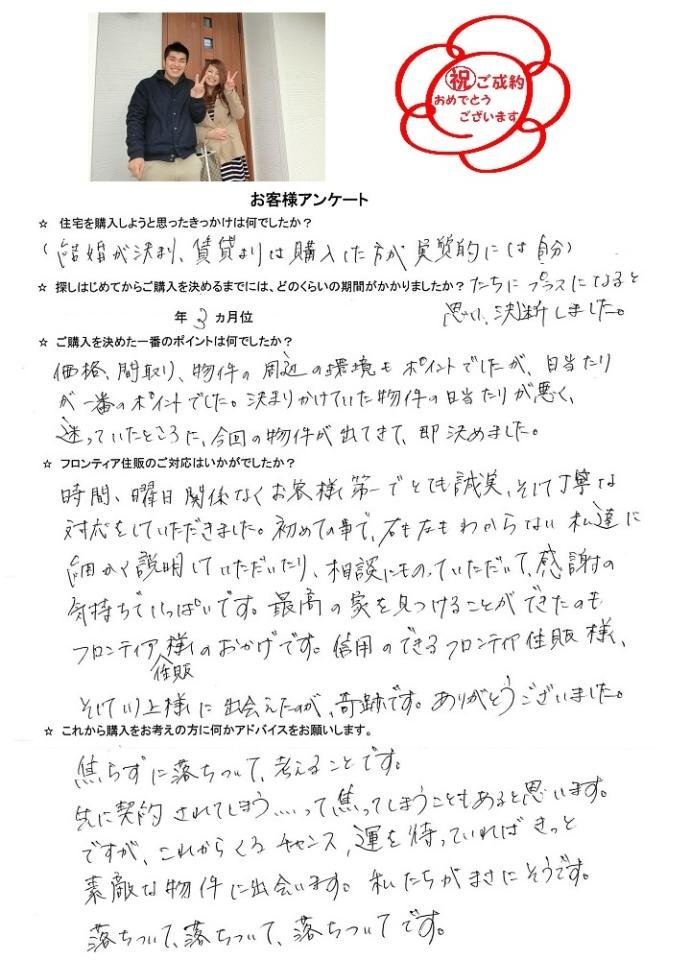 祝ご成約
おめでとう
ございます
お客様アンケート
☆ 住宅を購入しようと思ったきっかけは何でしたか？
(結婚が決まり、賃貸よりは購入した方が実質的には自分)
☆ 探しはじめてからご購入を決めるまでには、どのくらいの期間がかかりましたか？
たちにプラスになると
思い、決断しました。
年 3 ヵ月位
☆ ご購入を決めた一番のポイントは何でしたか？
価格、間取り、物件の周辺の環境もポイントでしたが、日当たり
が一番のポイントでした。決まりかけていた物件の日当たりが悪く、
迷っていたところに、今回の物件が出てきて、即決めました。
☆ フロンティア住販のご対応はいかがでしたか？
時間、曜日関係なくお客様第一でとても誠実、そして丁寧な
対応をしていただきました。初めての事で、右も左もわからない私達に
細かく説明していただいたり、相談にものっていただいて、感謝の
気持ちでいっぱいです。最高の家を見つけることができたのも
フロンティア住販様のおかげです。信用のできるフロンティア住販様、
そして川上様に出会えたのが、奇跡です。ありがとうございました。
☆ これから購入をお考えの方に何かアドバイスをお願いします。
焦らずに落ちついて、考えることです。
先に契約されてしまう....って焦ってしまうこともあると思います。
ですが、これからくるチャンス、運を待っていればきっと
素敵な物件に出会います。私たちがまさにそうです。
落ちついて、落ちついて、落ちついてです。